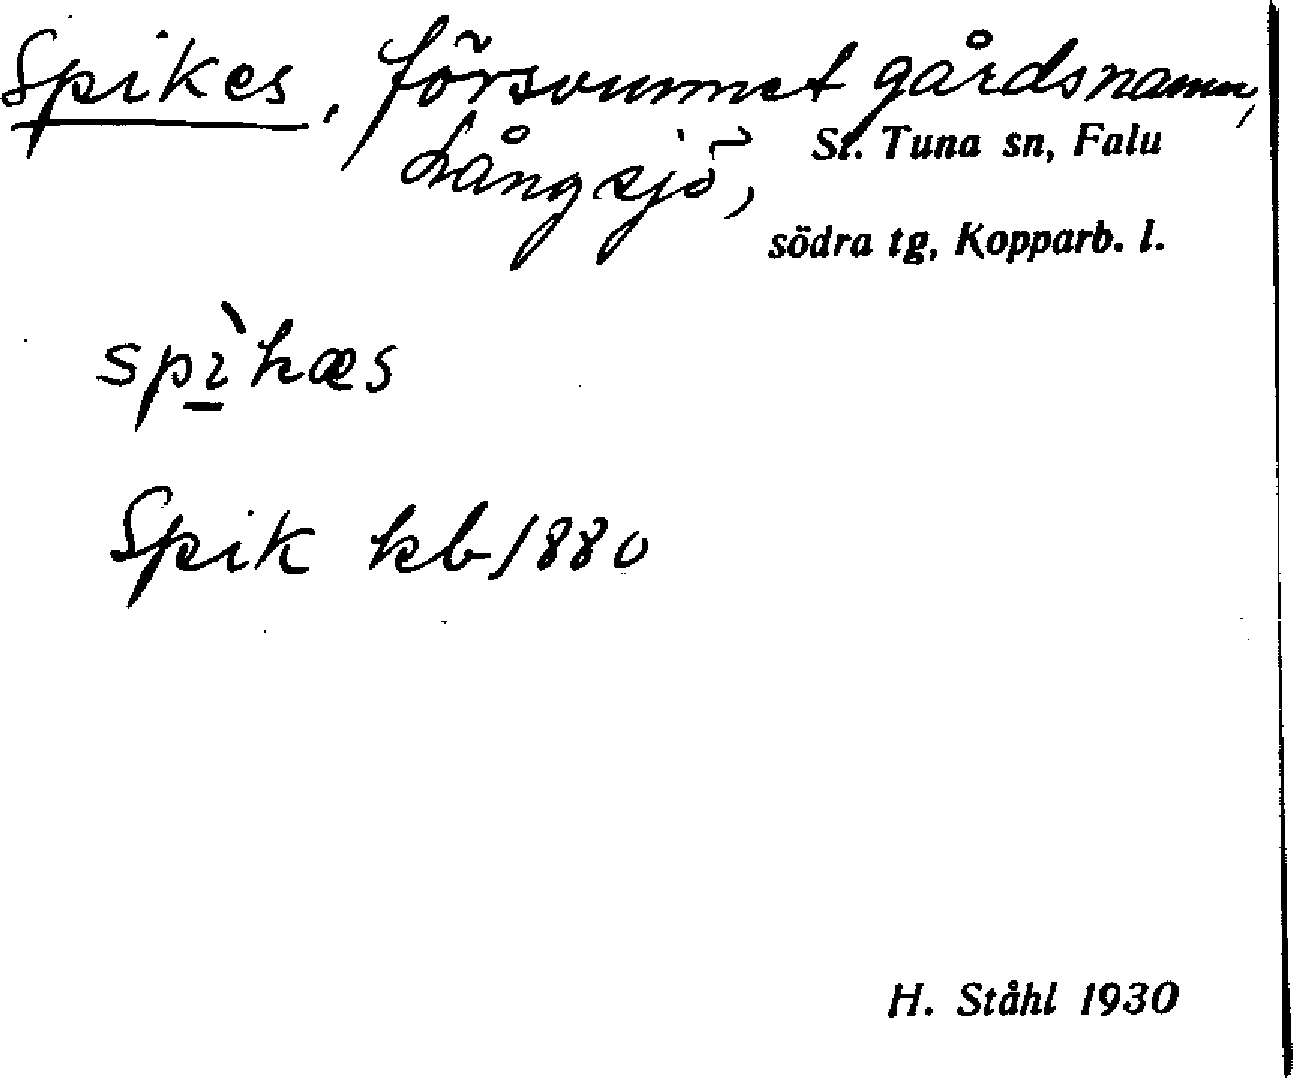 Spikes, försvunnet gårdsnamn,
Långsjö, St. Tuna sn, Falu
södra tg, Kopparb. l.
spìkæs
Spik kb 1880
H. Ståhl 1930